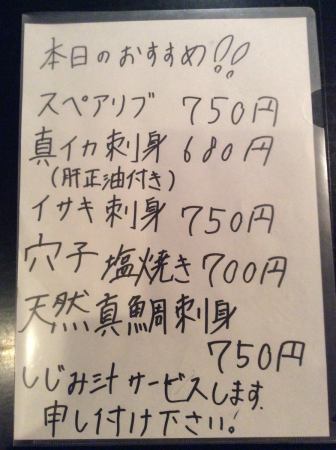 本日のおすすめ!!
スペアリブ 750円
真イカ刺身 680円
(肝正油付き)
イサキ刺身 750円
穴子 塩焼き 700円
天然真鯛刺身
750円
しじみ汁サービスします
申し付け下さい!